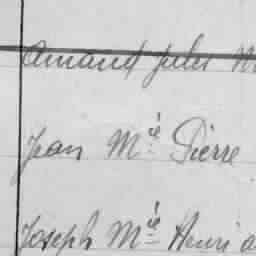 Amand Jules
Jean Mie Pierre
Joseph Mie Henri